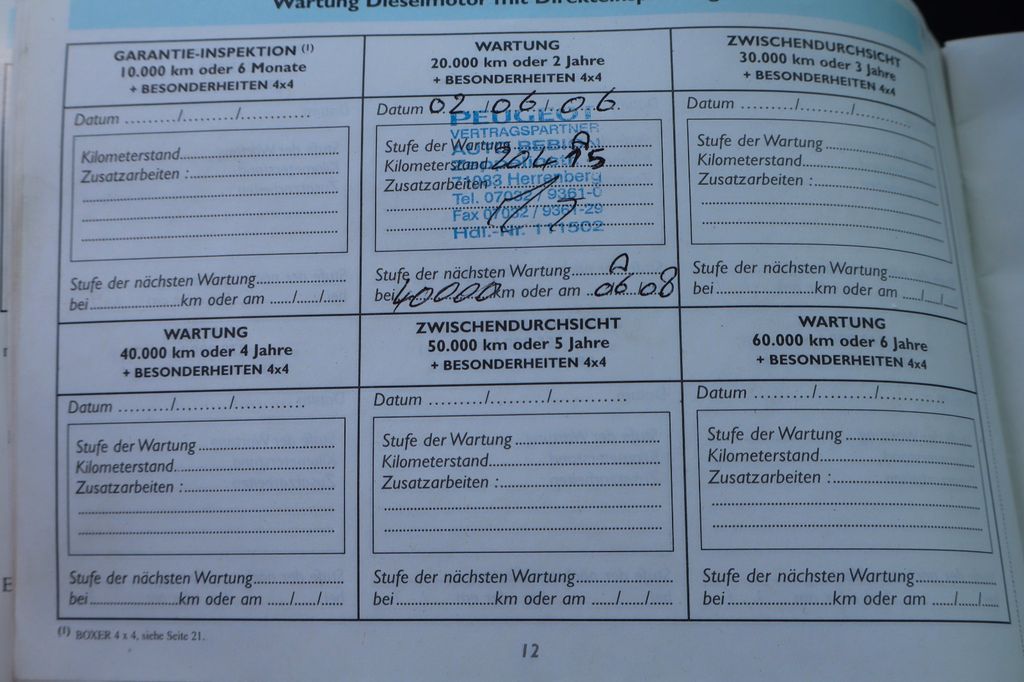 Wartung Dieselmotor mit
GARANTIE-INSPEKTION (1)
10.000 km oder 6 Monate
+ BESONDERHEITEN 4x4
Datum ........./........./...........
Kilometerstand
Zusatzarbeiten :
Stufe der nächsten Wartung
bei km oder am ....../....../......
WARTUNG
20.000 km oder 2 Jahre
+ BESONDERHEITEN 4x4
Datum 02/06/06.
PEUGEOT
VERTRAGSPARTNER
Stufe der Wartung A
Kilometerstand
Zusatzarbeiten
71083 Herrenberg
Tel. 07032 / 9361-0
Fax 07032 / 9361-29
Hdl.-Nr. 111502
Stufe der nächsten Wartung A
bei 40000 km oder am 06.08
ZWISCHENDURCHSICHT
30.000 km oder 3 Jahre
+ BESONDERHEITEN 4x4
Datum ........./........./...........
Stufe der Wartung
Kilometerstand
Zusatzarbeiten :
Stufe der nächsten Wartung
bei km oder am ....../....../......
WARTUNG
40.000 km oder 4 Jahre
+ BESONDERHEITEN 4x4
Datum ........./........./...........
Stufe der Wartung
Kilometerstand
Zusatzarbeiten :
Stufe der nächsten Wartung
bei km oder am ....../....../......
ZWISCHENDURCHSICHT
50.000 km oder 5 Jahre
+ BESONDERHEITEN 4x4
Datum ........./........./...........
Stufe der Wartung
Kilometerstand
Zusatzarbeiten :
Stufe der nächsten Wartung
bei km oder am ....../....../......
WARTUNG
60.000 km oder 6 Jahre
+ BESONDERHEITEN 4x4
Datum ........./........./...........
Stufe der Wartung
Kilometerstand
Zusatzarbeiten :
Stufe der nächsten Wartung
bei km oder am ....../....../......
(1) BOXER 4 x 4, siehe Seite 21.
12